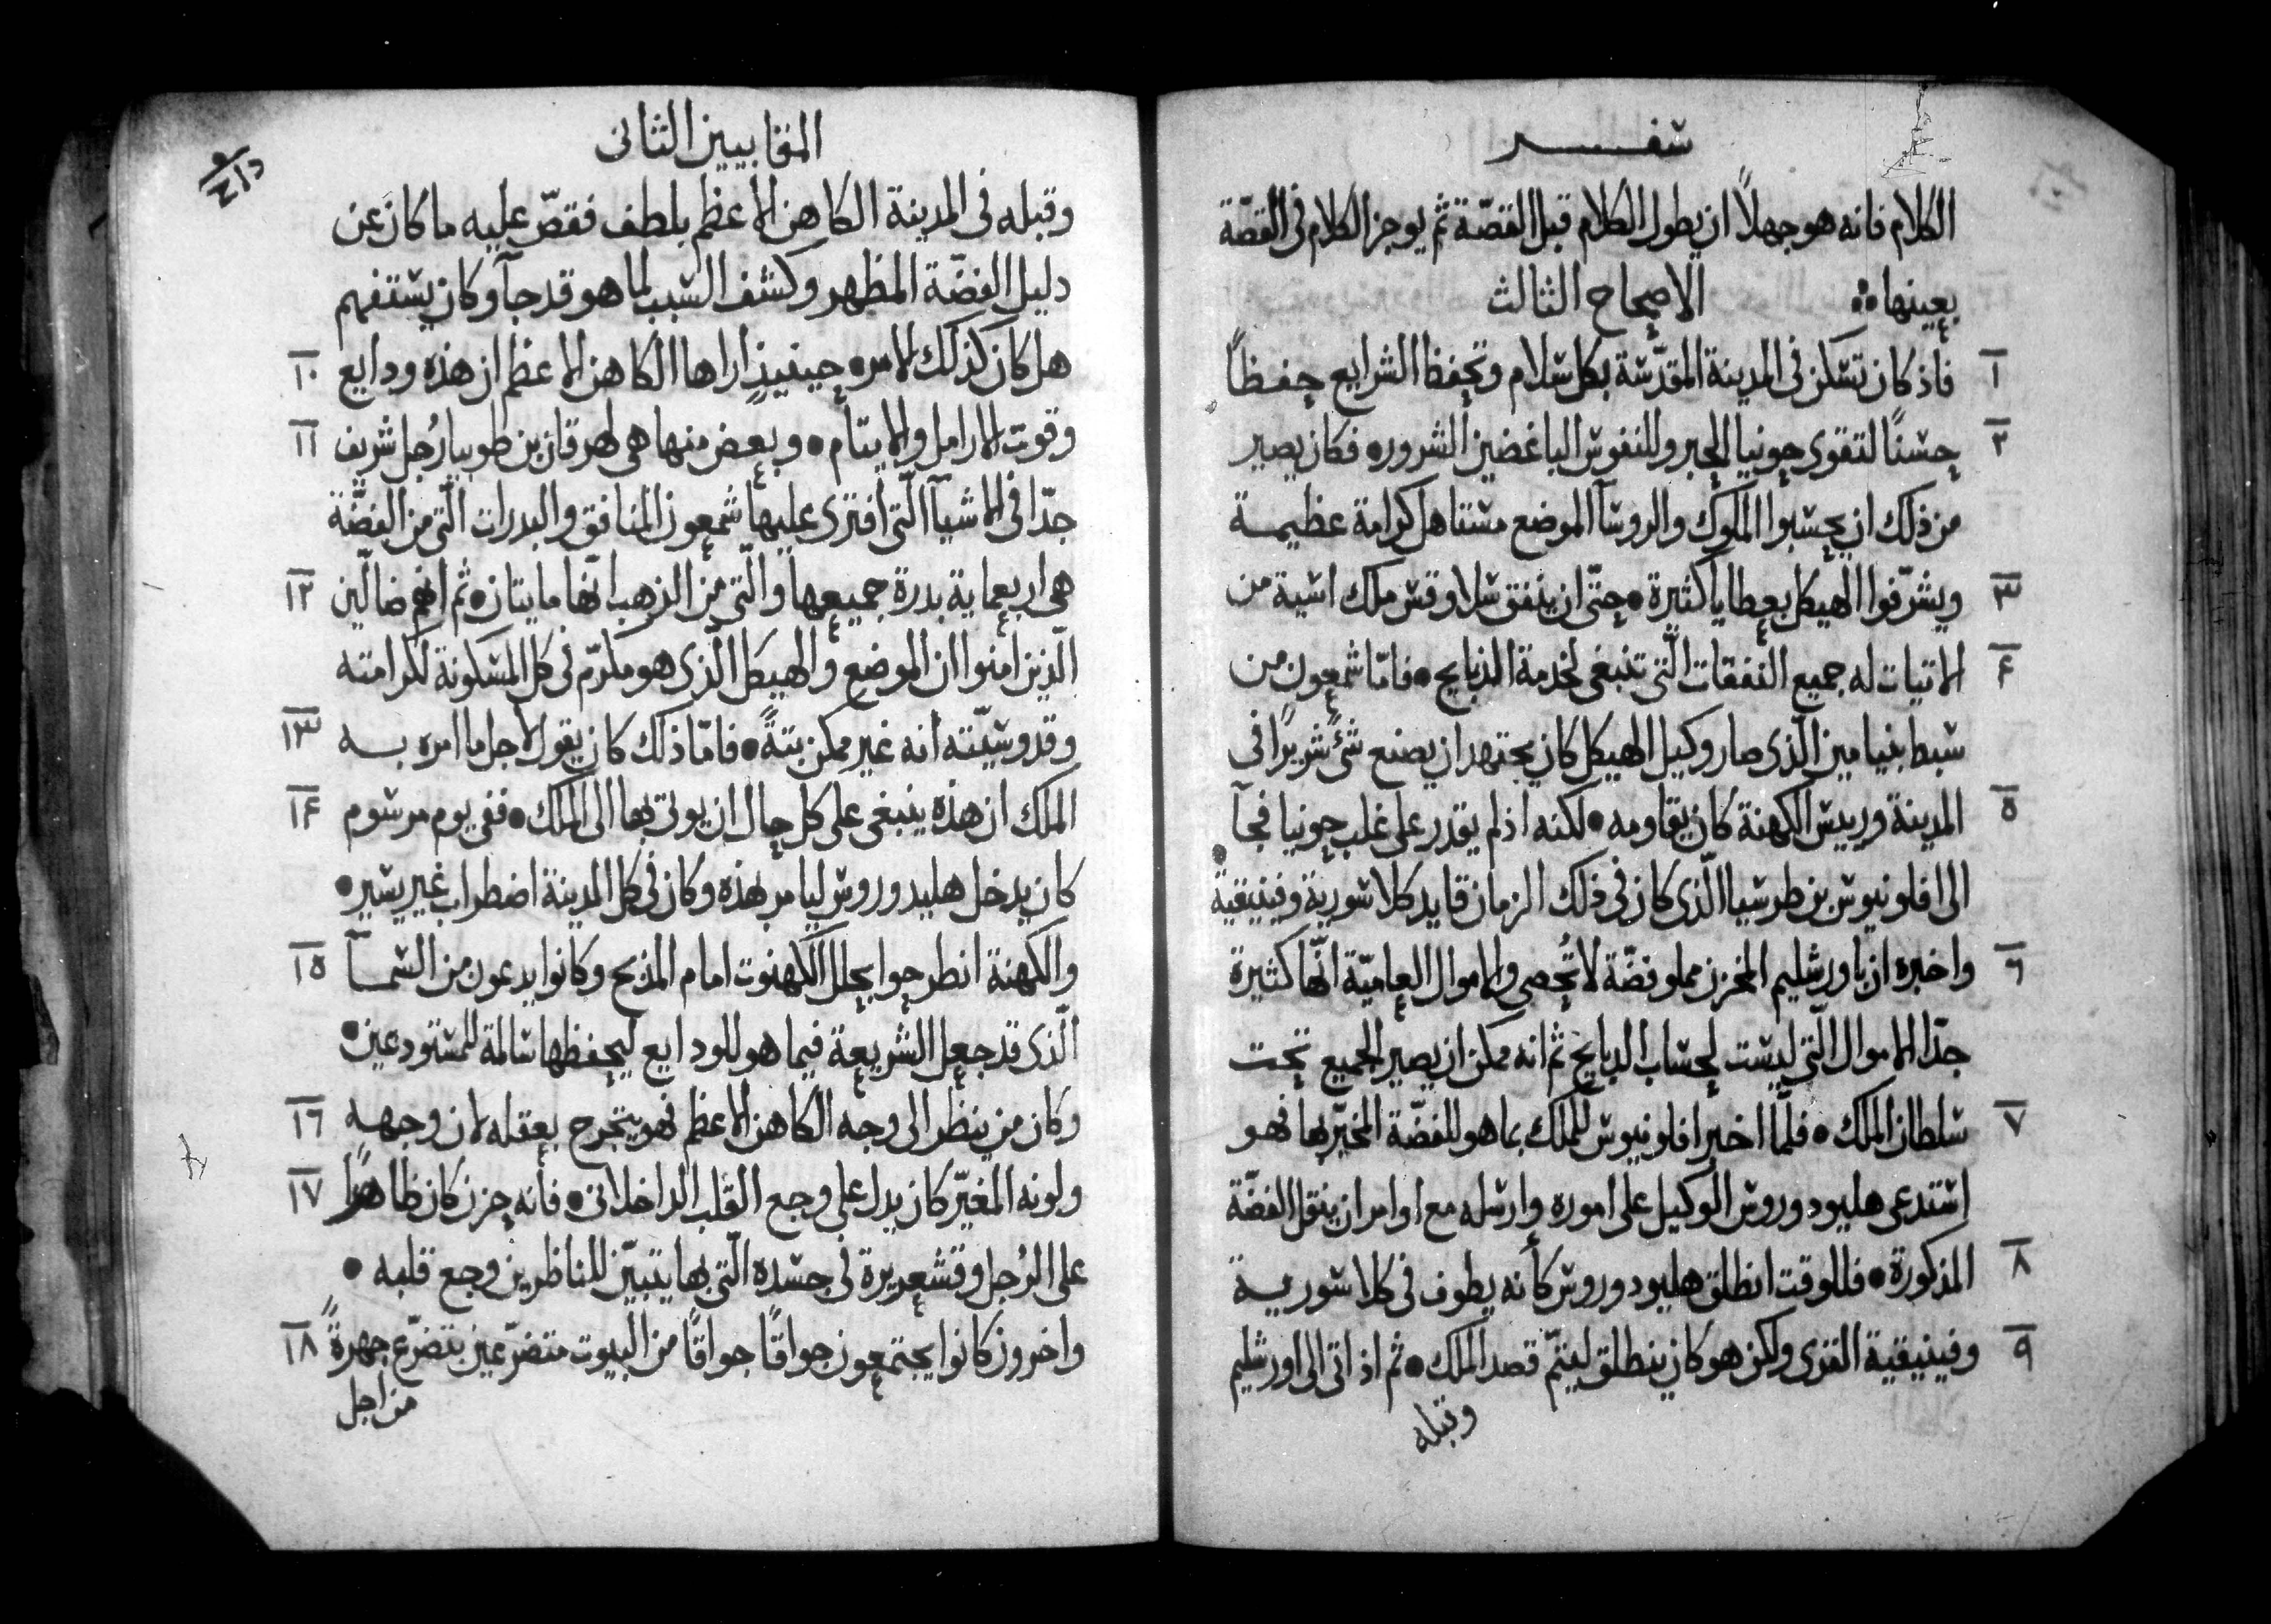 سفر
الكلام فانه هو جهلاً ان يطول الكلام قبل القصّة ثم يوجز الكلام فى القصّة
بعينها ❖ الاصحاح الثالث
١ فاذ كان تسكن فى المدينة المقدّسة بكل سلام وتحفظ الشرايع حفظاً
٢ حسنًا لتقوى حونيا الحبر وللنفوس الباغضين الشرور • فكان يصير
من ذلك ان يحسبوا الملوك والروسآ الموضع مستاهل كرامة عظيمة
٣ ويشرّفوا الهيكل بعطايا كثيرة • حتّى ان ينفق سلاوقس ملك اسية من
۴ الاتيات له جميع النفقات الّتى تنبغى لخدمة الذبايح • فامّا شمعون من
سبط بنيامين الّذى صار وكيل الهيكل كان يجتهد ان يصنع شىً شريرًا فى
٥ المدينة وريس الكهنة كان يقاومه • لكنه اذ لم يقدر على غلب حونيا فجآ
الى افلونيوس بن طرسيا الّذى كان فى ذلك الزمان قايد كلاسورية وفينيقية
٦ واخبره ان باورشليم المخزن مملو فضّة لا تُحصى والاموال العاميّة انّها كثيرة
جدّا الاموال الّتى ليست لحساب الدبايح ثم انه ممكن ان يصير الجميع تحت
٧ سلطان الملك • فلمّا اخبر افلونيوس للملك بما هو للفضّة المخبّر بها فهو
استدعى هليودوروس الوكيل على اموره وارسله مع اوامر ان ينقل الفضّة
٨ المذكورة • فللوقت انطلق هليودوروس كأنه يطوف فى كلاسورية
٩ وفينيقية القرى ولكن هو كان ينطلق ليتمّ قصد الملك • ثم اذ اتى الى اورشليم
وقبله
المقابيين الثانى
وقبله فى المدينة الكاهن الاعظم بلطف فقصّ عليه ما كان عن
دليل الفضّة المظهر وكشف السبب لما هو قد جآ وكان يستفهم
١٠ هل كان كذلك الامر • حينيذٍ اراها الكاهن الاعظم ان هذه ودايع
١١ وقوت الارامل والايتام • وبعض منها هى لهرقان بن طوبيا رُجل شريف
جدّا فى الاشيآ الّتى أفترى عليها شمعون المنافق والبدرات الّتى من الفضّة
١٢ هى اربعماية بدرة جميعها والّتى من الذهب انّها مايتان • ثم انهم ضالّين
الّذين امنوا ان الموضع والهيكل الّذى هو مكرّم فى كل المسكونة لكرامته
١٣ وقدوسيّته أنه غير ممكن بتةً • فامّا ذلك كان يقول لاجل ما امره به
١۴ الملك ان هذه ينبغى على كل حال ان يوتى بها الى الملك • ففى يوم مرسوم
كان يدخل هليدوروس ليامر بهذه وكان فى كل المدينة اضطراب غير يسير •
١٥ والكهنة انطرحوا بحلل الكهنوت امام المذبح وكانوا يدعون من السمآ
الّذى قد جعل الشريعة فيما هو للودايع ليحفظها سالمة للمستودعين •
١٦ وكان من ينظر الى وجه الكاهن الاعظم فهو يتجرح بعقله لان وجهه
١٧ ولونه المغيّر كان يدل على وجع القلب الداخلانى • فأنه حزن كان ظاهرًا
على الرُجل وقشعريرة فى جسده الّتى بها يتبيّن للناظرين وجع قلبه •
١٨ واخرون كانوا يجتمعون جواقًا جواقًا من البيوت متضرّعين بتضرّع جهرةً
من اجل